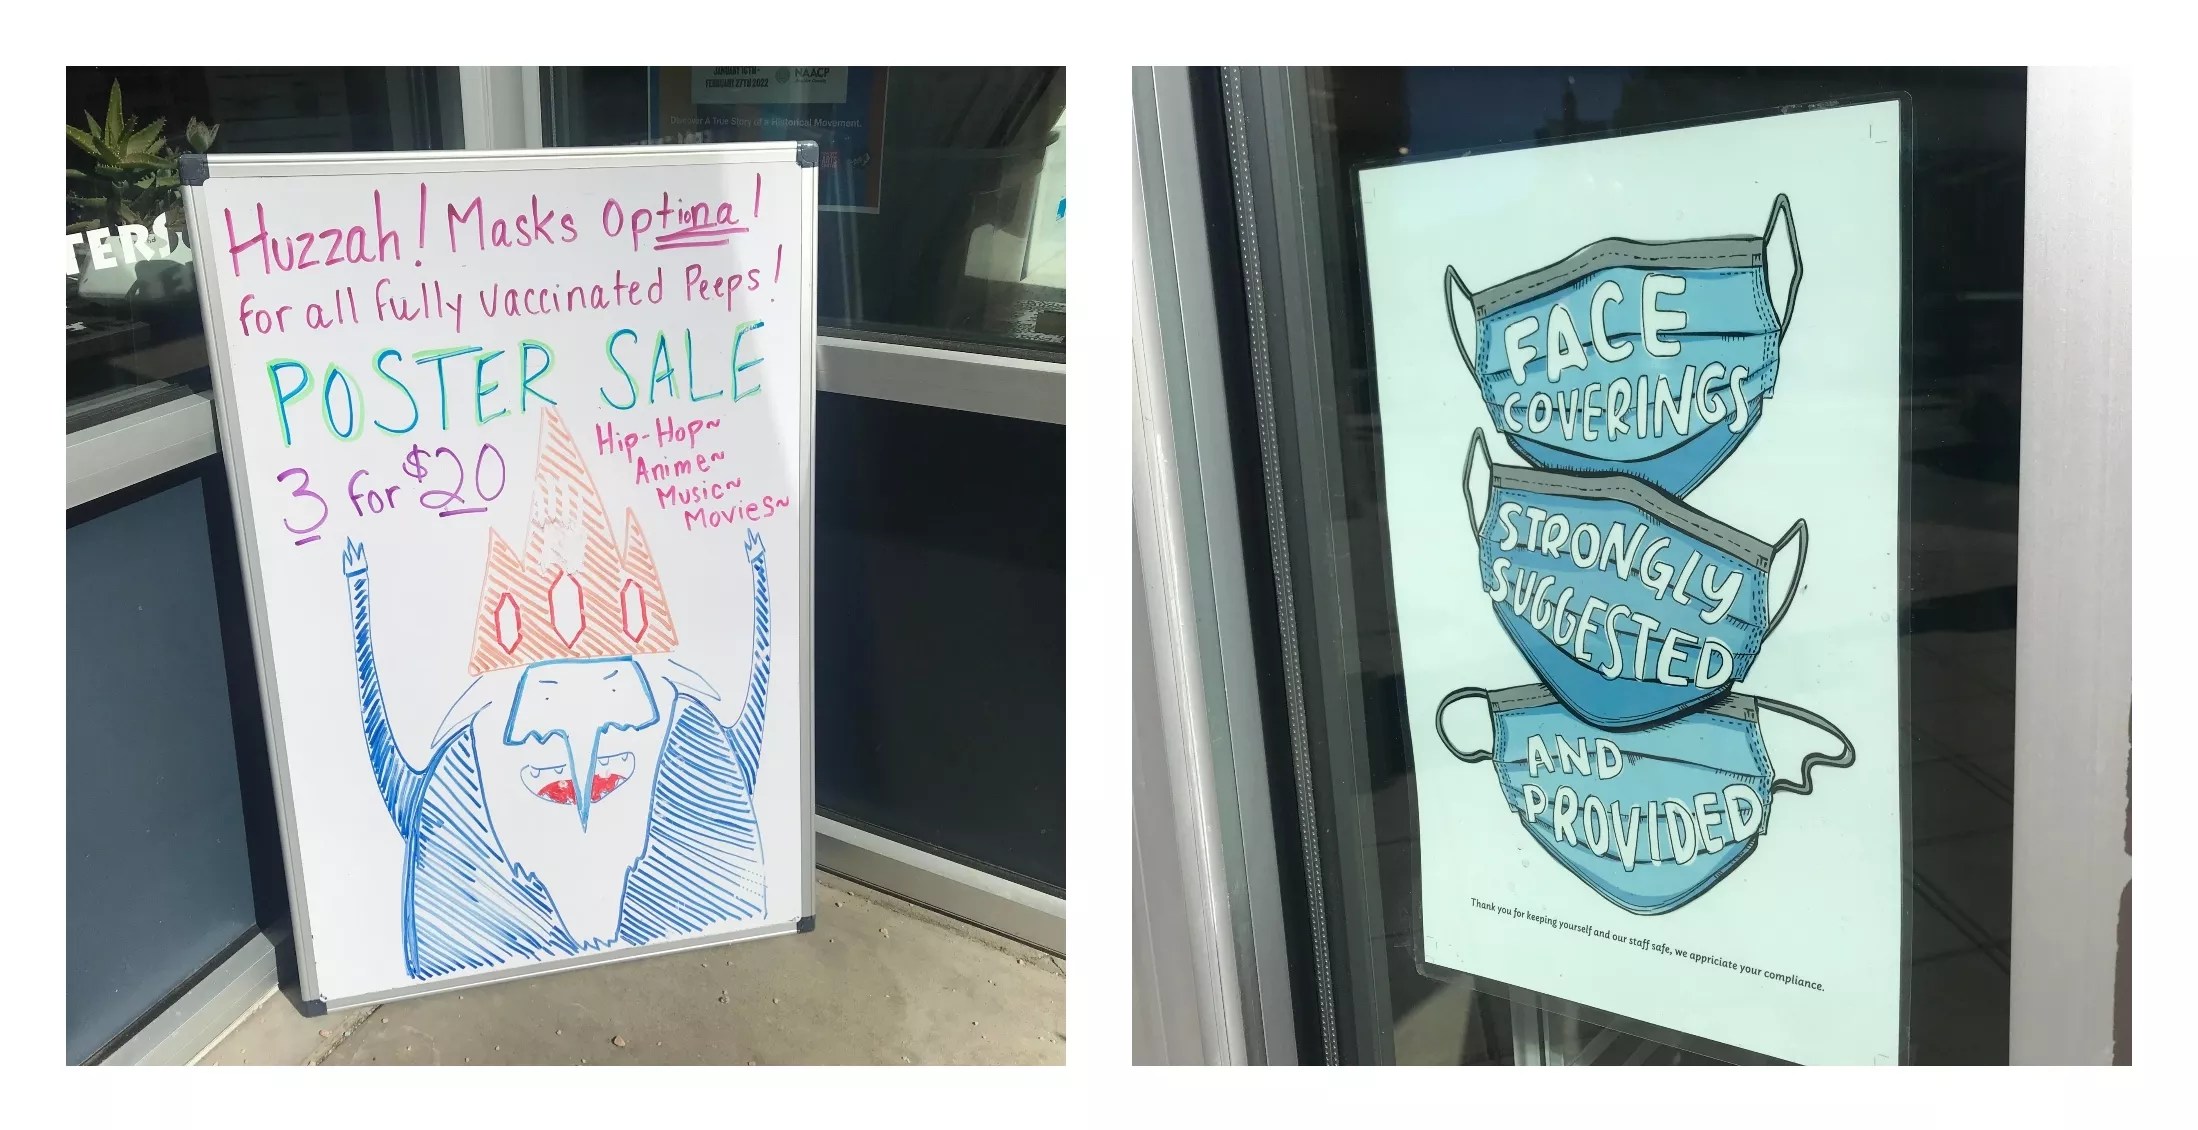 JANUARY 16TH -
FEBRUARY 27TH 2022
NAACP
Discover A True Story of a Historical Movement.
TERS
Huzzah! Masks Optiona!
for all fully vaccinated Peeps!
POSTER SALE
3 for $20
Hip-Hop~
Anime~
Music~
Movies~
FACE
COVERINGS
STRONGLY
SUGGESTED
AND
PROVIDED
Thank you for keeping yourself and our staff safe, we appriciate your compliance.